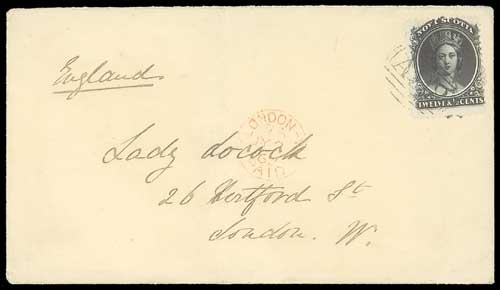 NOVA SCOTIA
TWELVE & ½ CENTS
England
LONDON
PAID
Lady Locock
26 Hertford St
London. W.